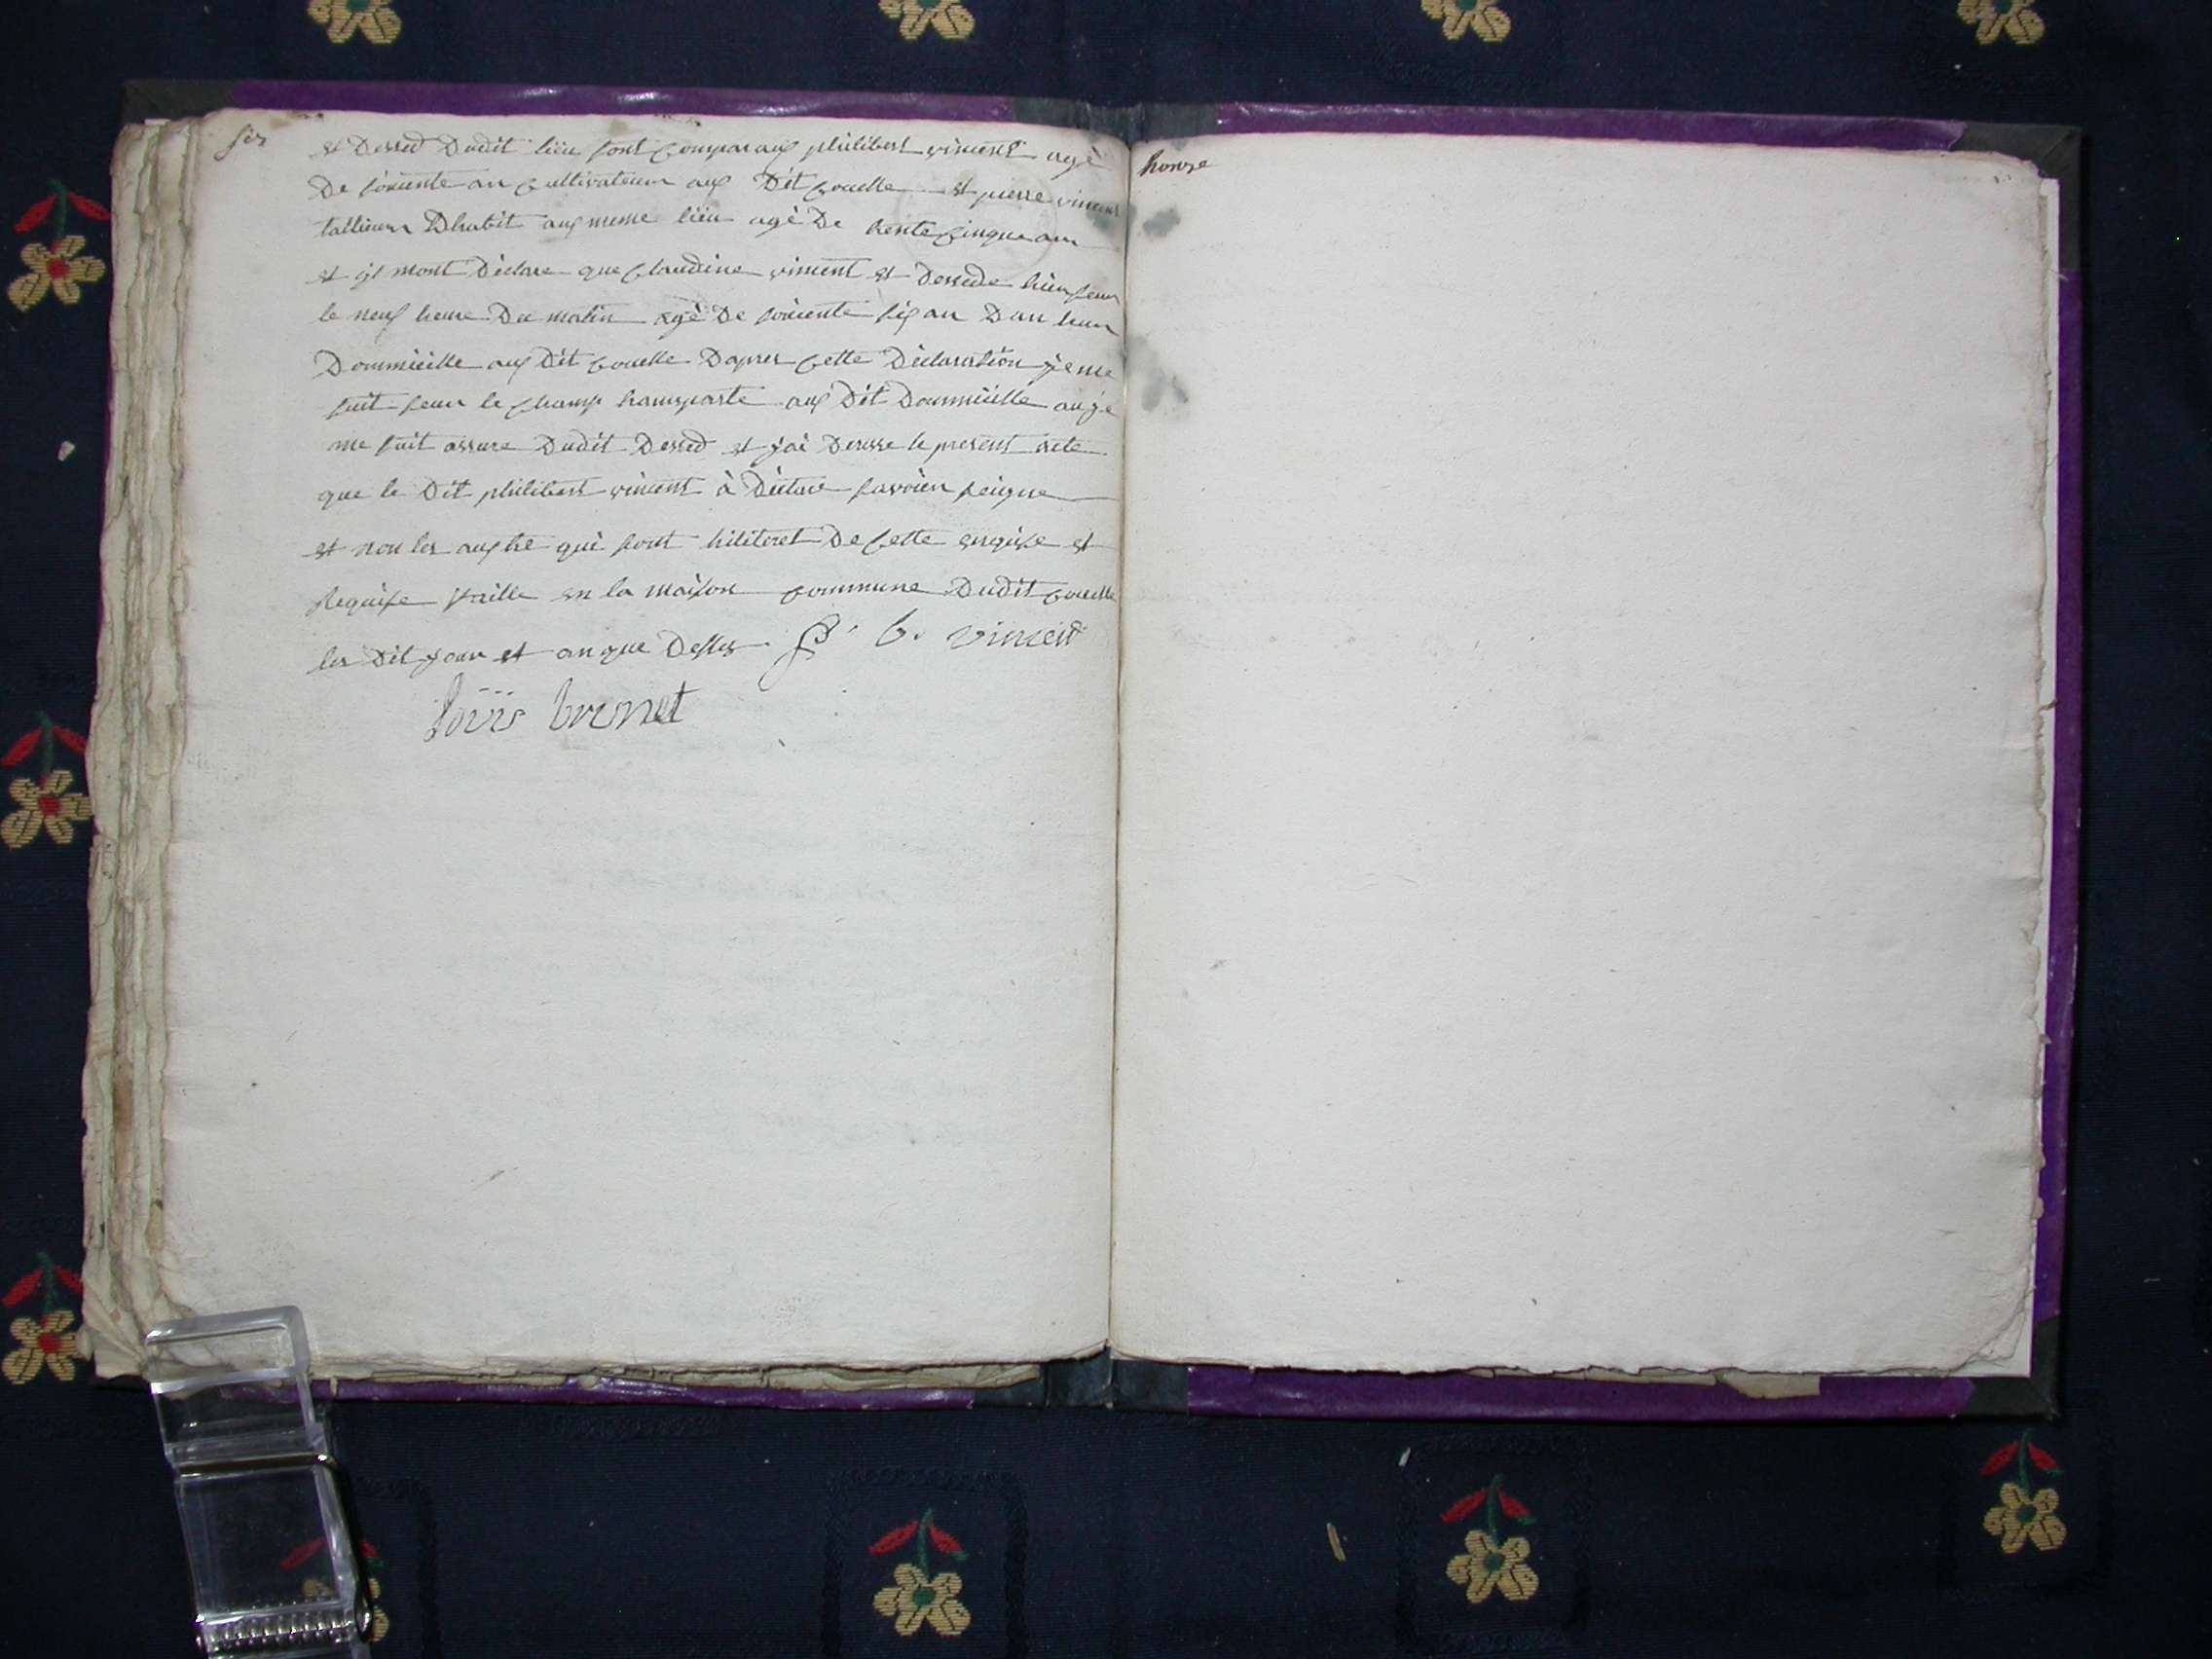 six
et Dessed Dudit lieu sont comparaux philibert vincent agè
De soixente an cultivateur aux Dit couelle et pierre vincent
tallieur Dhabit aux meme lieu agè De trente cinque an
et ils mont Dèclare que claudine vincent et Dessede hier seur
le neuf heure Du matin agè De soixente six an Dan leur
Dommicille aux Dit couelle Dapres cette Dèclaration je me
suit seur le champ transporte aux Dit Dommicille ou je
me suit assure Dudit Dessed et j'ai Deresse le present acte
que le Dit philibert vincent à Dèclare savoir seigne
et non les auxtre qui sont De cette enquise et
Requise faitte en la maison commune Dudit couelle
les Dit jour et an que Desses P. b. vincent
loüis brunet